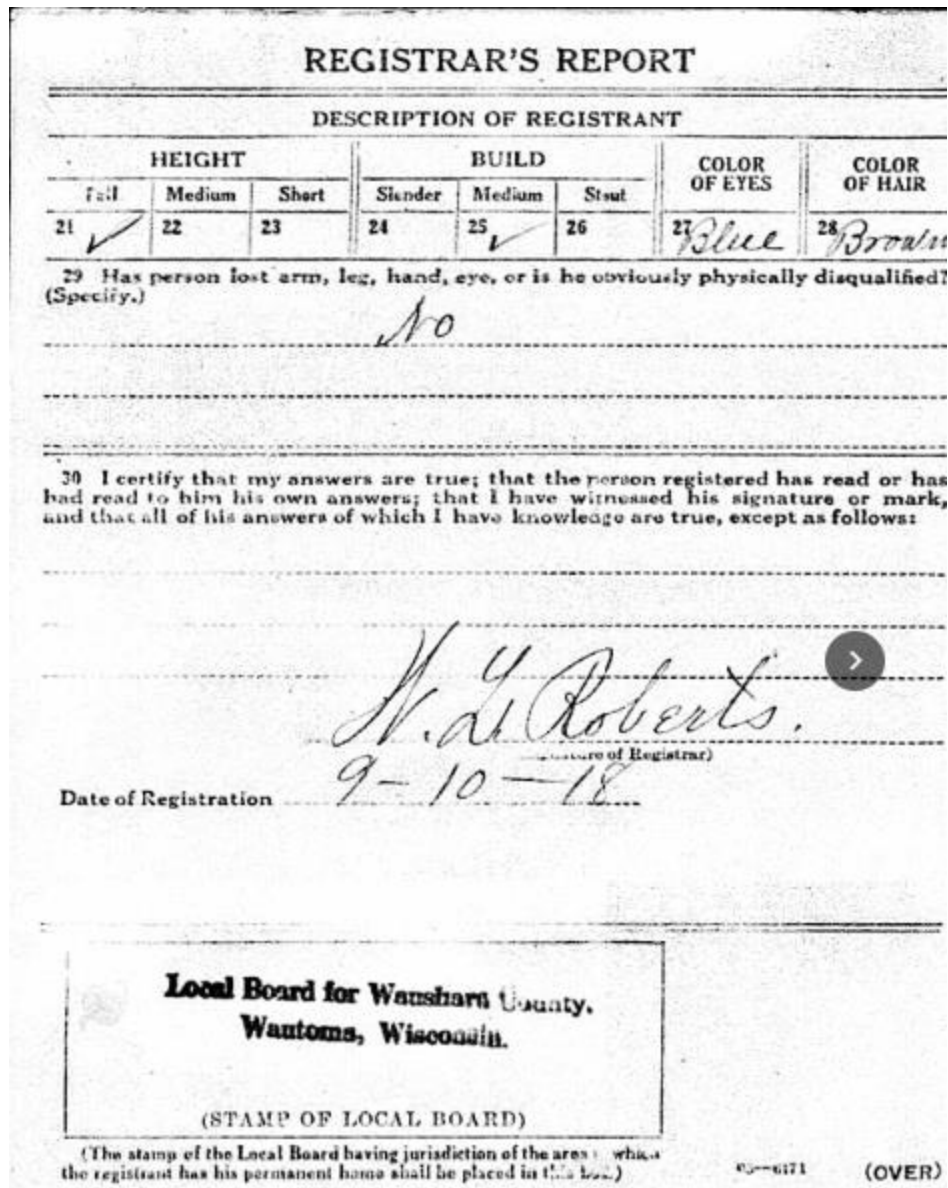 REGISTRAR'S REPORT
DESCRIPTION OF REGISTRANT
HEIGHT BUILD COLOR OF EYES COLOR OF HAIR
Tall Medium Short Slender Medium Stout
21 ✓ 22 23 24 25 ✓ 26 27 Blue 28 Brown
29 Has person lost arm, leg, hand, eye, or is he obviously physically disqualified?
(Specify.)
No
30 I certify that my answers are true; that the person registered has read or has
had read to him his own answers; that I have witnessed his signature or mark,
and that all of his answers of which I have knowledge are true, except as follows:
W. L. Roberts.
(Signature of Registrar)
Date of Registration 9-10-18
Local Board for Waushara County,
Wautoma, Wisconsin.
(STAMP OF LOCAL BOARD)
(The stamp of the Local Board having jurisdiction of the area in which
the registrant has his permanent home shall be placed in this box.)
03—6171 (OVER)